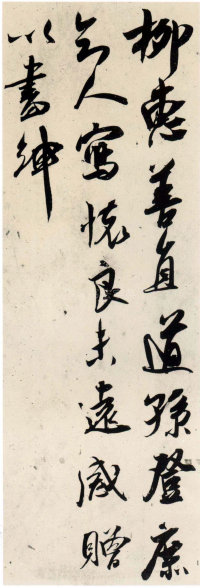 柳惠善直道孫登庶
知人寫懷良未遠感贈
以書紳